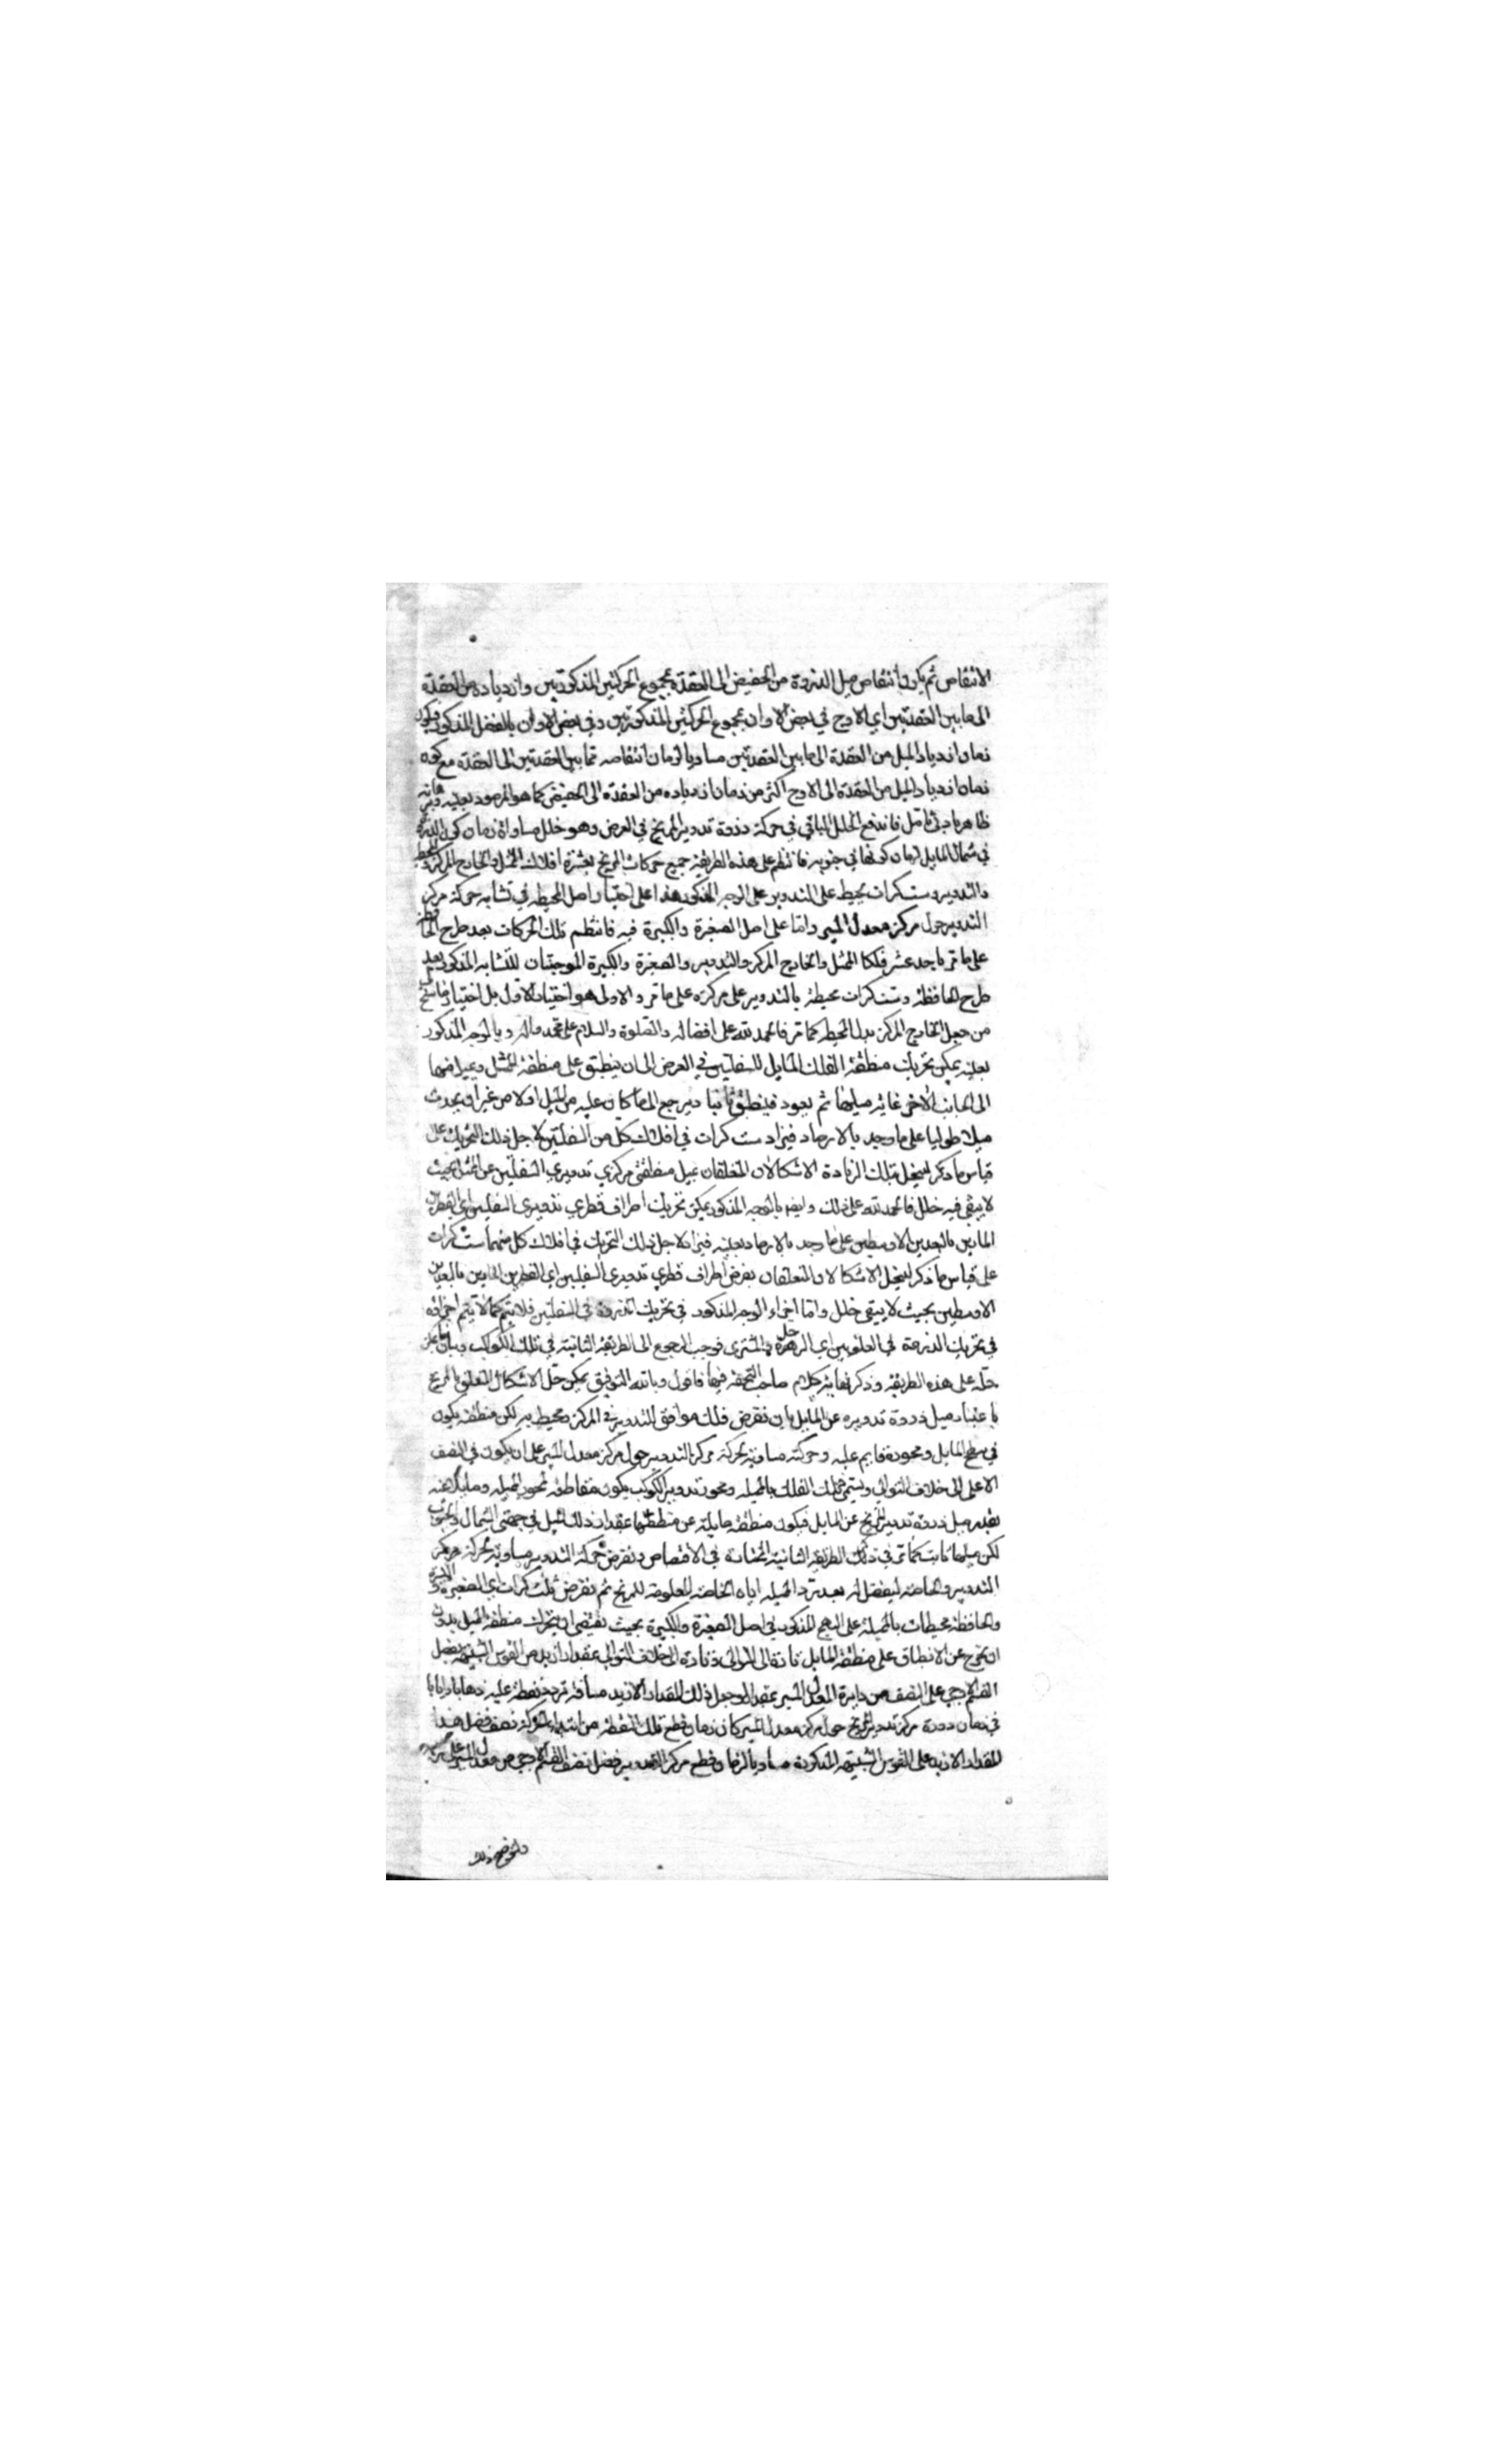 الانتقاص ثم يكون انتقاص ميل الذروة من الحضيض الى العقدة بمجموع الحركتين المذكورتين وازدياده من العقدة
الى ما بين العقدتين اي الاوج في بعض الاوان بمجموع الحركتين المذكورتين وفي بعض الاوان بالفضل المذكور فيكون
زمان ازدياد الميل من العقدة الى ما بين العقدتين مساويا لزمان انتقاصه مما بين العقدتين الى العقدة مع كون
زمان ازدياد الميل من العقدة الى الاوج اكثر من زمان ازدياده من العقدة الى الحضيض كما هو المرصود بعينه
ظاهر بادنى تامل فاندفع الخلل الباقي في حركة ذروة تدوير المريخ في العرض وهو خلل مساواة زمان كون الذروة
في شمال المايل لزمان كونها في جنوبه فانتظم على هذه الطريقة جميع حركات المريخ بعشرة افلاك الممثل والخارج المركز والمحيط
والتدوير وست كرات تحيط على التدوير على الوجه المذكور هذا على اختيار اصل المحيطة في تشابه حركة مركز
التدوير حول مركز معدل المسير واما على اصل الصغيرة والكبيرة فيه فانتظم تلك الحركات بعد طرح الحافظة
على ما مر باحد عشر فلكا الممثل والخارج المركز والتدوير والصغيرة والكبيرة الموجبتان للتشابه المذكور بعد
طرح الحافظة وست كرات محيطة بالتدوير على مركزه على ما مر والاولى هو اختيار الاول بل اختيار ما سنح لي
من جعل الخارج المركز بدل المحيطة كما مر فالحمد لله على افضاله والصلوة والسلام على محمد واله وبالوجه المذكور
بعينه يمكن تحريك منطقة الفلك المايل للسفليين في العرض الى ان ينطبق على منطقة الممثل ويميل منها
الى الجانب الاخر غاية ميلها ثم يعود فينطبق ثانيا ويرجع الى ما كان عليه من الميل اولا من غير ان يحدث
ميلا طوليا على ما وجد بالارصاد فيزاد ست كرات في افلاك كل من السفليين لاجل ذلك التحريك على
قياس ما ذكر لينحل بتلك الزيادة الاشكالان المتعلقان بميل منطقتي مركزي تدويري السفليين عن الممثل بحيث
لا يبقى فيه خلل فالحمد لله على ذلك وايضا بالوجه المذكور يمكن تحريك اطراف قطري تدويري السفليين اي القطرين
المارين بالبعدين الاوسطين على ما وجد بالارصاد بعينه فيزاد لاجل ذلك التحريك في افلاك كل منهما ست كرات
على قياس ما ذكر لينحل الاشكالان المتعلقان بعرض اطراف قطري تدويري السفليين اي القطرين المارين بالبعدين
الاوسطين بحيث لا يبقى خلل واما اجراء الوجه المذكور في تحريك الذروة في السفليين فلا يتم كما لا يتم اجراؤه
في تحريك الذروة في العلويين اي زحل والمشتري فوجب الرجوع الى الطريقة الثانية في تلك الكواكب وبيان ما يمكن
حله على هذه الطريقة وذكرنها بين كلام صاحب التحفة فيها فاقول وبالله التوفيق يمكن حل الاشكال المتعلق بالمريخ
باعتبار ميل ذروة تدويره عن المايل بان نفرض فلك موافق التدوير في المركز ومحيط به لكن منطقته يكون
في سطح المايل ومحوره قايم عليه وحركته مساوية لحركة مركز التدوير حول مركز معدل المسير على ان يكون في النصف
الاعلى الى خلاف التوالي ويسمى ذلك الفلك بالمميلة ومحور تدوير الكوكب يكون متقاطعة لمحور المميلة ومايلا عنه
بقدر ميل ذروة تدوير المريخ عن المايل فيكون منطقته مايلة عن منطقتها بمقدار ذلك الميل في جهتي الشمال والجنوب
لكن ميلها ثابت كما مر في تلك الطريقة الثانية المختارة في الاقتصاص ونفرض حركة التدوير مساوية لحركة مركز
التدوير والخاصة ليفضل له بعد رد المميلة اياه الخاصة المعلومة للمريخ ثم نفرض ثلث كرات اي الصغيرة والكبيرة
والحافظة محيطات بالمميلة على النهج المذكور في اصل الصغيرة والكبيرة بحيث يقتضي ان يتحرك منطقة المميلة بدون
ان يخرج عن الانطباق على منطقة المايل تارة الى التوالي وتارة الى خلاف التوالي بمقدار ازيد من القوس الشبيهة بفضل
القسم الاوجي على النصف من دايرة المعدل المسير بمقدار لاجل ذلك المقدار الازيد مسافة تردد نقطة عليه ذهابا وايابا
في زمان دورة مركز تدوير المريخ حول مركز معدل المسير كان زمان قطع تلك النقطة من ابتداء الحركة نصف فضل هذا
المقدار الازيد على القوس الشبيهة المذكورة مساويا لزمان قطع مركز التدوير فضل نصف القسم الاوجي من معدل المسير على
ولنوضح ذلك